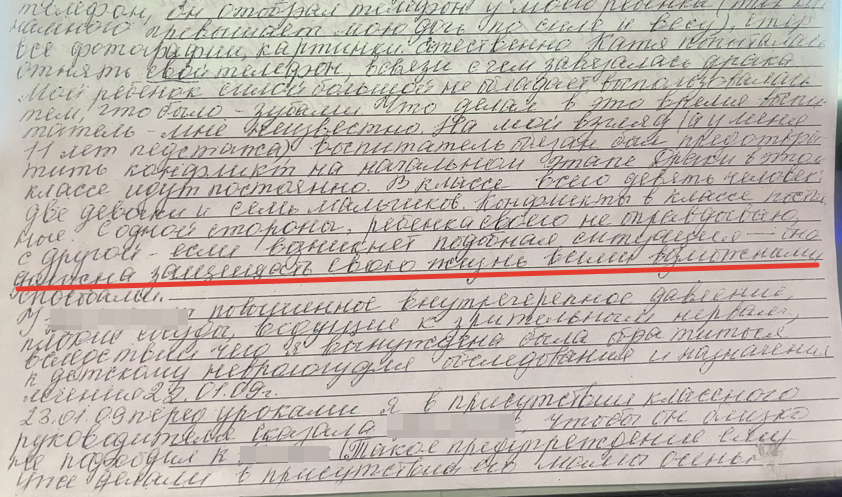 телефон, он отобрал телефон у моего ребенка (так как
намного превышает мою дочь по силе и весу), стер
все фотографии, картинки. Естественно Катя пыталась
отнять свой телефон, в связи с чем завязалась драка.
Мой ребенок силой большой не обладает, воспользовалась
тем, что было - зубами. Что делал в это время воспи-
татель - мне неизвестно. На мой взгляд (а у меня
11 лет педстажа) воспитатель обязан был предотвра-
тить конфликт на начальном этапе. Драки в этом
классе идут постоянно. В классе всего девять человек:
две девочки и семь мальчиков. Конфликты в классе постоян
ные. С одной стороны, ребенка своего не оправдываю,
с другой - если возникнет подобная ситуация - она
должна защищать свою жизнь всеми возможными
способами.
У повышенное внутричерепное давление,
плохие сосуды, ведущие к зрительным нервам,
вследствии чего я вынуждена была обратиться
к детскому неврологу для обследования и назначения
лечения 22.01.09г.
23.01.09 перед уроками я в присутствии классного
руководителя сказала чтобы он близко
не подходил к (Такое предупреждение ему
уже делали в присутствии его мамы осенью